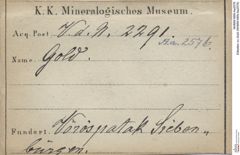 K. K. Mineralogisches Museum.
Acq. Post V.d.N. 2291.
Aa. 2576.
Name: Gold.
Fundort: Vöröspatak Sieben-
bürgen.